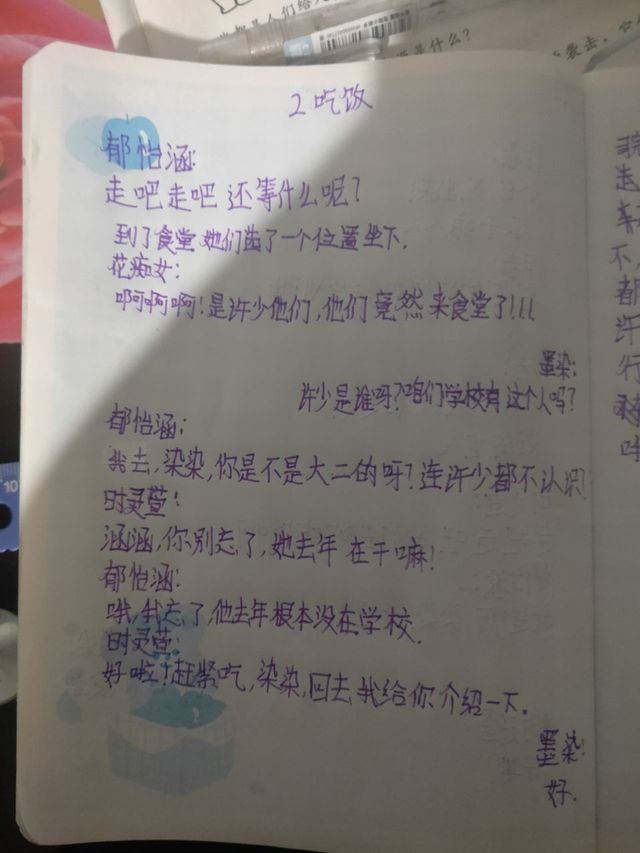 2 吃饭
郁怡涵:
走吧走吧 还等什么呢?
到了食堂她们选了一个位置坐下.
花痴女:
啊啊啊啊!是许少他们,他们竟然来食堂了!!!
墨染:
许少是谁呀?咱们学校有这个人吗?
郁怡涵:
我去,染染,你是不是大二的呀?连许少都不认识!
时灵萱:
涵涵,你别忘了,她去年在干嘛!
郁怡涵:
哦,我忘了,他去年根本没在学校.
时灵萱:
好啦!赶紧吃,染染,回去我给你介绍一下.
墨染:
好.